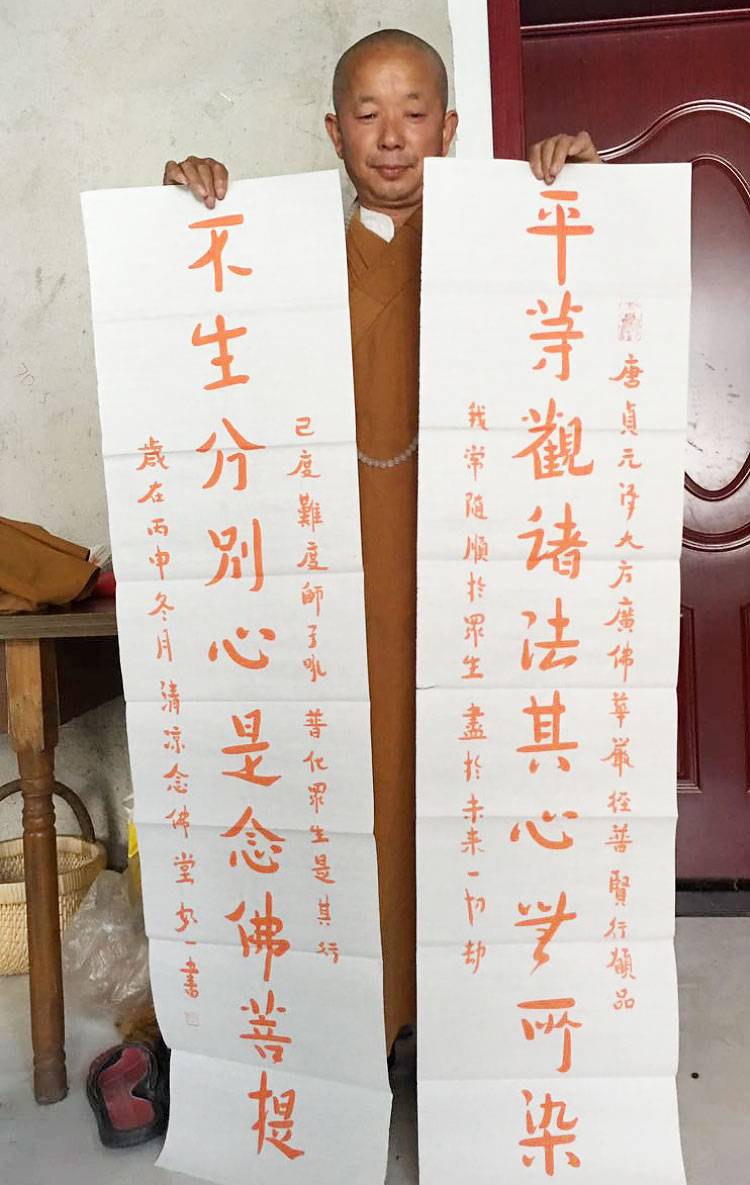 唐貞元译大方廣佛華嚴经普賢行願品
平等觀諸法其心無所染
我常隨順於眾生 盡於未来一切劫
已度難度師子吼 普化眾生是其行
不生分別心是念佛菩提
歲在丙申冬月清凉念佛堂 一書